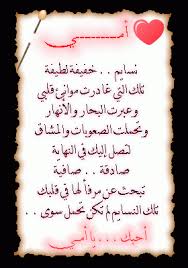 أمـــــــي
نسايم . . خفيفة لطيفة
تلك التي غادرت موانئ قلبي
وعبرت البحار والأنهار
وتحملت الصعوبات والمشاق
لتصل إليك في النهاية
صادقة . . صافية
تبحث عن مرفأ لها في قلبك
تلك النسايم لم تكن تحمل سوى . .
أحبك ... يا أمـي